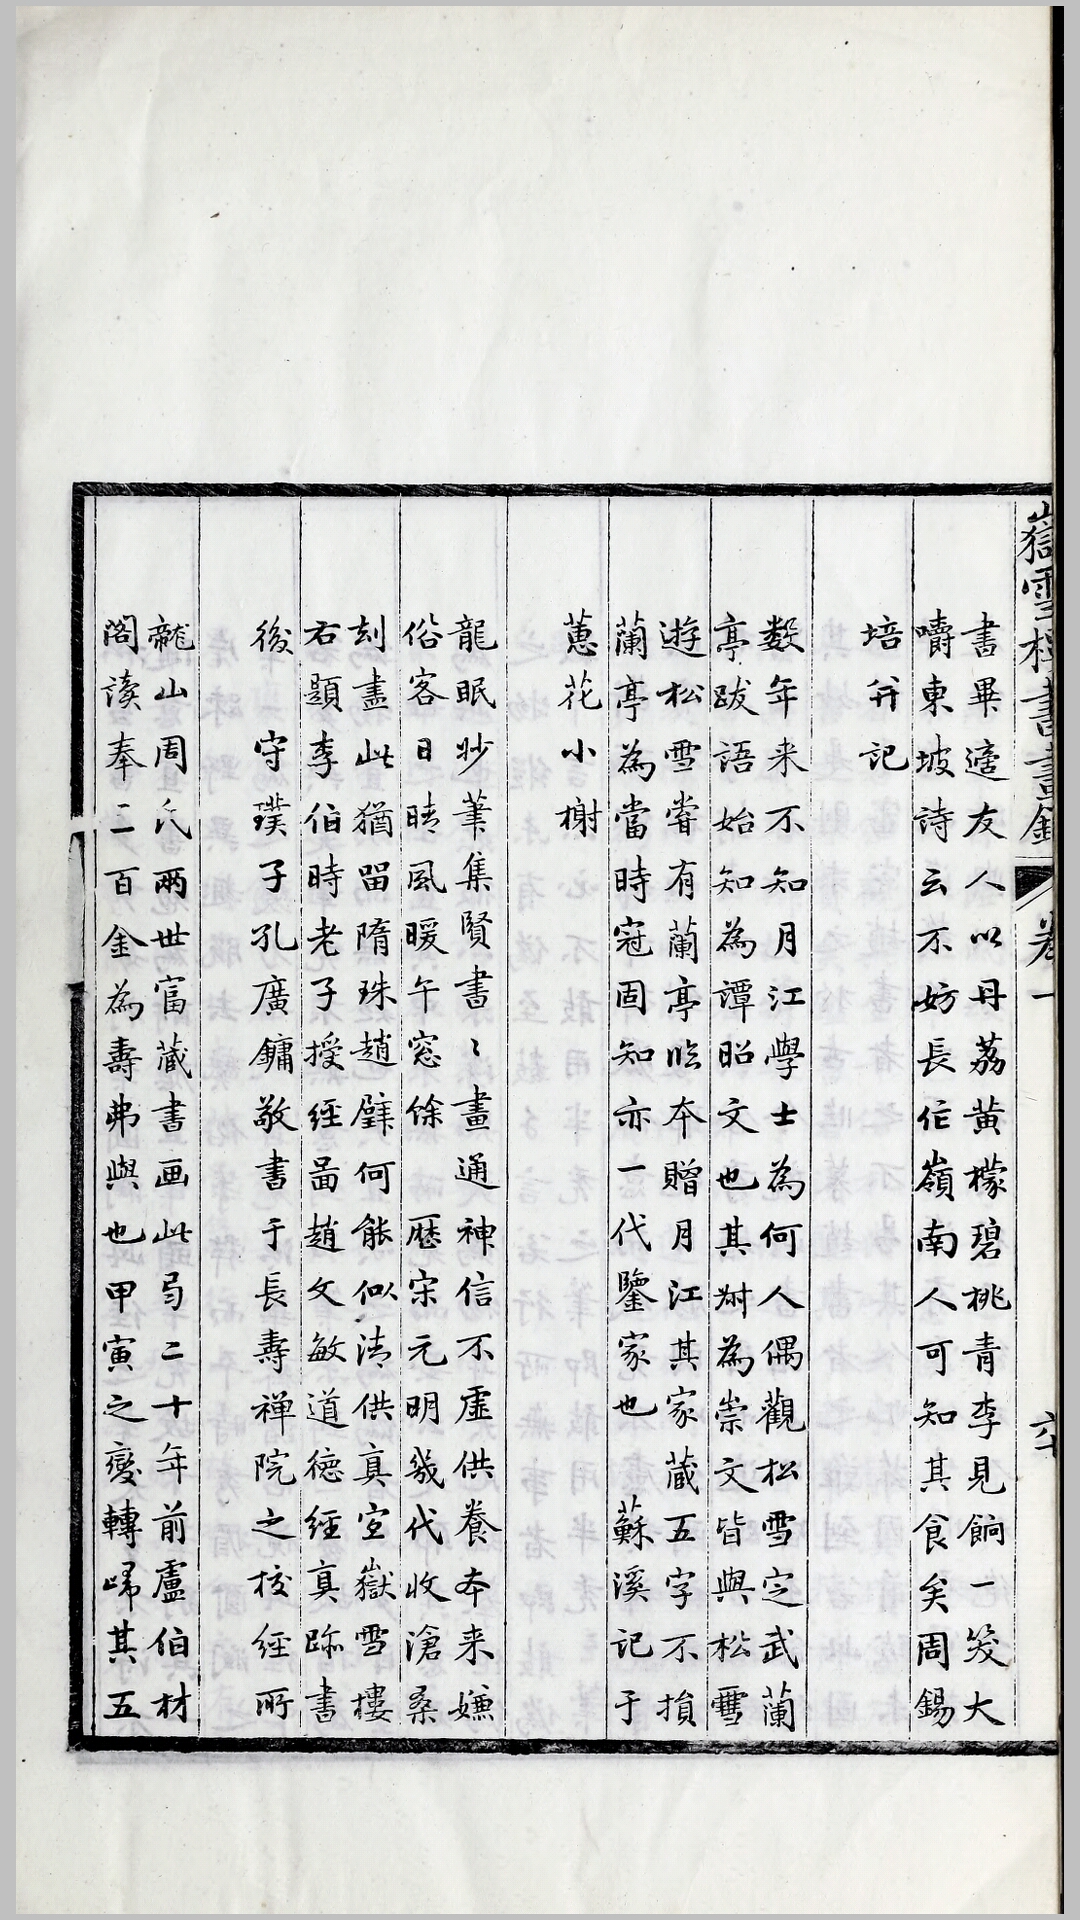 嶽雪樓書畫錄 卷一 六十
書畢適友人以丹荔黃檬碧桃青李見餉一笑大
嚼東坡詩云不妨長作嶺南人可知其食矣周錫
培并記
數年来不知月江學士為何人偶觀松雪定武蘭
亭跋語始知為譚昭文也其尌為崇文皆與松雪
遊松雪甞有蘭亭临本贈月江其家蔵五字不損
蘭亭為當時冠固知亦一代鑒家也 蘇溪記于
蕙花小榭
龍眠妙筆集賢書〻畫通神信不虛供養本来嫌
俗客日晴風暖午窓馀 歷宋元明幾代收滄桑
刻盡此猶畱隋珠趙璧何能似清供真宜嶽雪樓
右題李伯時老子授經啚趙文敏道德經真跡書
後 守璞子孔廣鏞敬書于長壽禅院之校經所
龍山周氏兩世富藏書画此㢧二十年前盧伯材
閣读奉二百金為壽弗與也甲寅之變轉歸其五